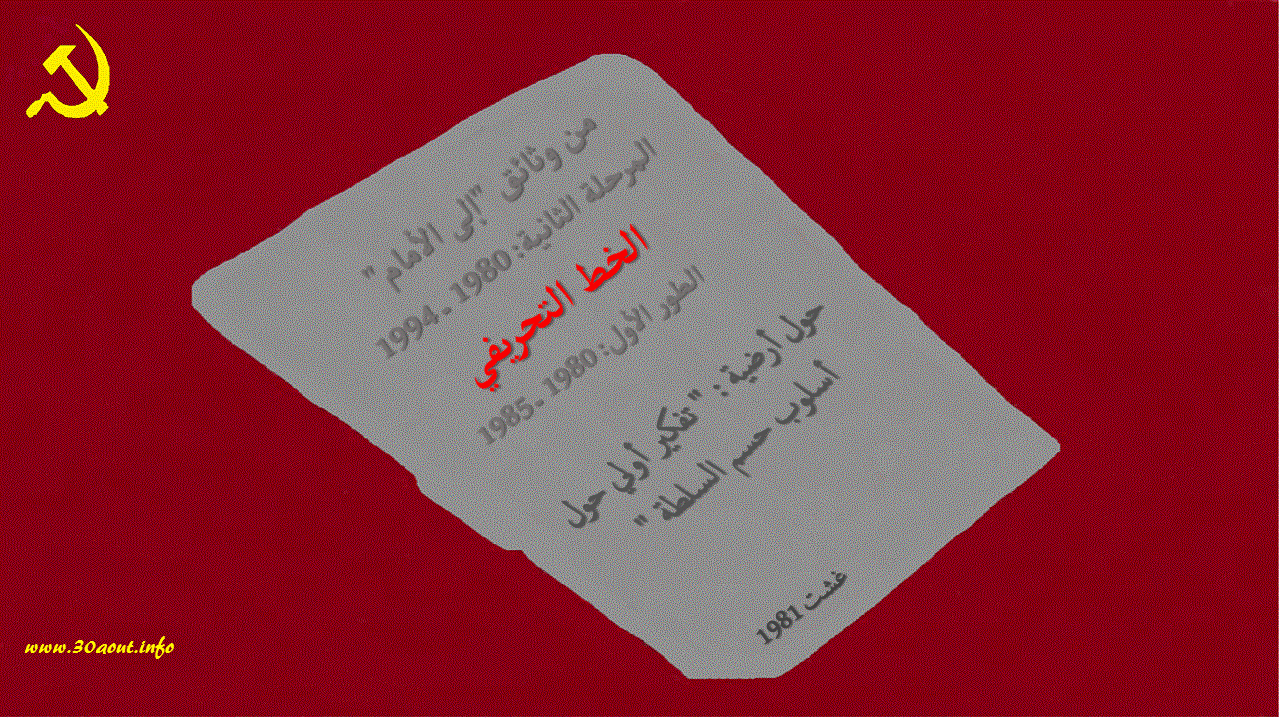 من وثائق "إلى الأمام"
المرحلة الثانية: 1980 ـ 1994
الخط التحريفي
الطور الأول: 1980 ـ 1985
حول أرضية : "تفكير أولي حول
أسلوب حسم السلطة "
غشت 1981
www.30aout.info